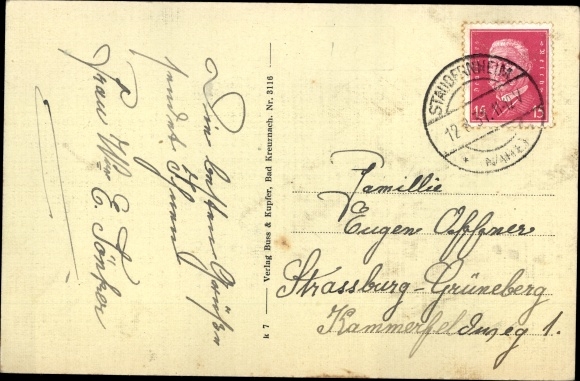 Die besten Grüße
sendet Ihnen
Frau Wwe E.
Verlag Buss & Kupfer, Bad Kreuznach. Nr. 3116
k 7
STAUDERNHEIM
(NAHE)
15 15
Familie
Eugen Offner
Strassburg-Grüneberg
Kammerfeldweg 1.